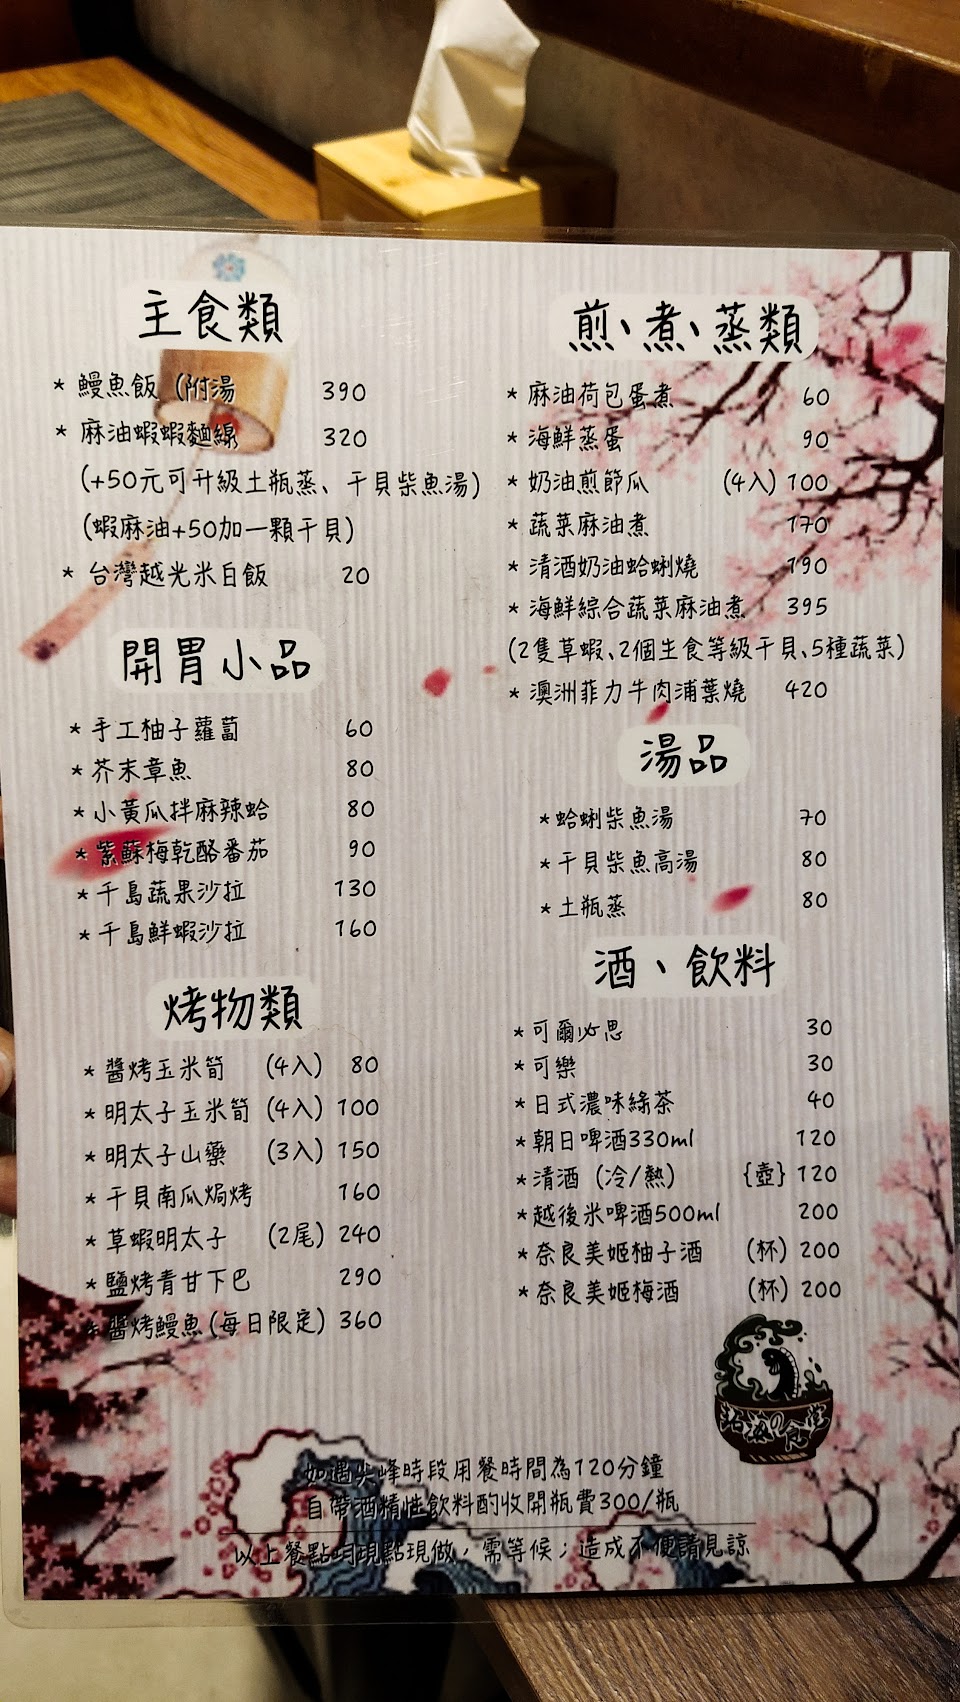 主食類
* 鰻魚飯 (附湯 390
* 麻油蝦蝦麵線 320
(+50元可升級土瓶蒸、干貝柴魚湯)
(蝦麻油+50加一顆干貝)
* 台灣越光米白飯 20
開胃小品
* 手工柚子蘿蔔 60
* 芥末章魚 80
* 小黃瓜拌麻辣蛤 80
* 紫蘇梅乾酪番茄 90
* 千島蔬果沙拉 130
* 千島鮮蝦沙拉 160
烤物類
* 醬烤玉米筍 (4入) 80
* 明太子玉米筍 (4入) 100
* 明太子山藥 (3入) 150
* 干貝南瓜焗烤 160
* 草蝦明太子 (2尾) 240
* 鹽烤青甘下巴 290
* 醬烤鰻魚 (每日限定) 360
煎、煮、蒸類
* 麻油荷包蛋煮 60
* 海鮮蒸蛋 90
* 奶油煎節瓜 (4入) 100
* 蔬菜麻油煮 170
* 清酒奶油蛤蜊燒 190
* 海鮮綜合蔬菜麻油煮 395
(2隻草蝦、2個生食等級干貝、5種蔬菜)
* 澳洲菲力牛肉浦葉燒 420
湯品
* 蛤蜊柴魚湯 70
* 干貝柴魚高湯 80
* 土瓶蒸 80
酒、飲料
* 可爾必思 30
* 可樂 30
* 日式濃味綠茶 40
* 朝日啤酒330ml 120
* 清酒 (冷/熱) {壺} 120
* 越後米啤酒500ml 200
* 奈良美姬柚子酒 (杯) 200
* 奈良美姬梅酒 (杯) 200
如遇尖峰時段用餐時間為120分鐘
自帶酒精性飲料酌收開瓶費300/瓶
以上餐點均現點現做，需等候；造成不便請見諒